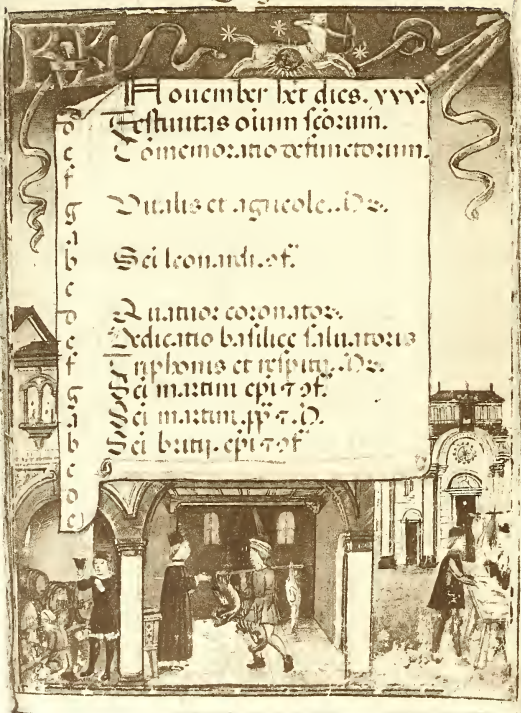 KL
November h̅et dies. xxx.
d Festiuitas oi̅um sc̅orum.
e Co̅memoratio defunctorum.
f
g Vitalis et agricole. M̅r.
a
b Sc̅i leonardi. ɔf̅.
c
d Quatuor coronator.
e Dedicatio basilice saluatoris
f Triphonis et respitij. M̅r.
g Sc̅i martini ep̅i ⁊ ɔf̅.
a Sc̅i martini. pp̅ ⁊ M̅.
b Sc̅i britij. ep̅i ⁊ ɔf̅
c
d
e